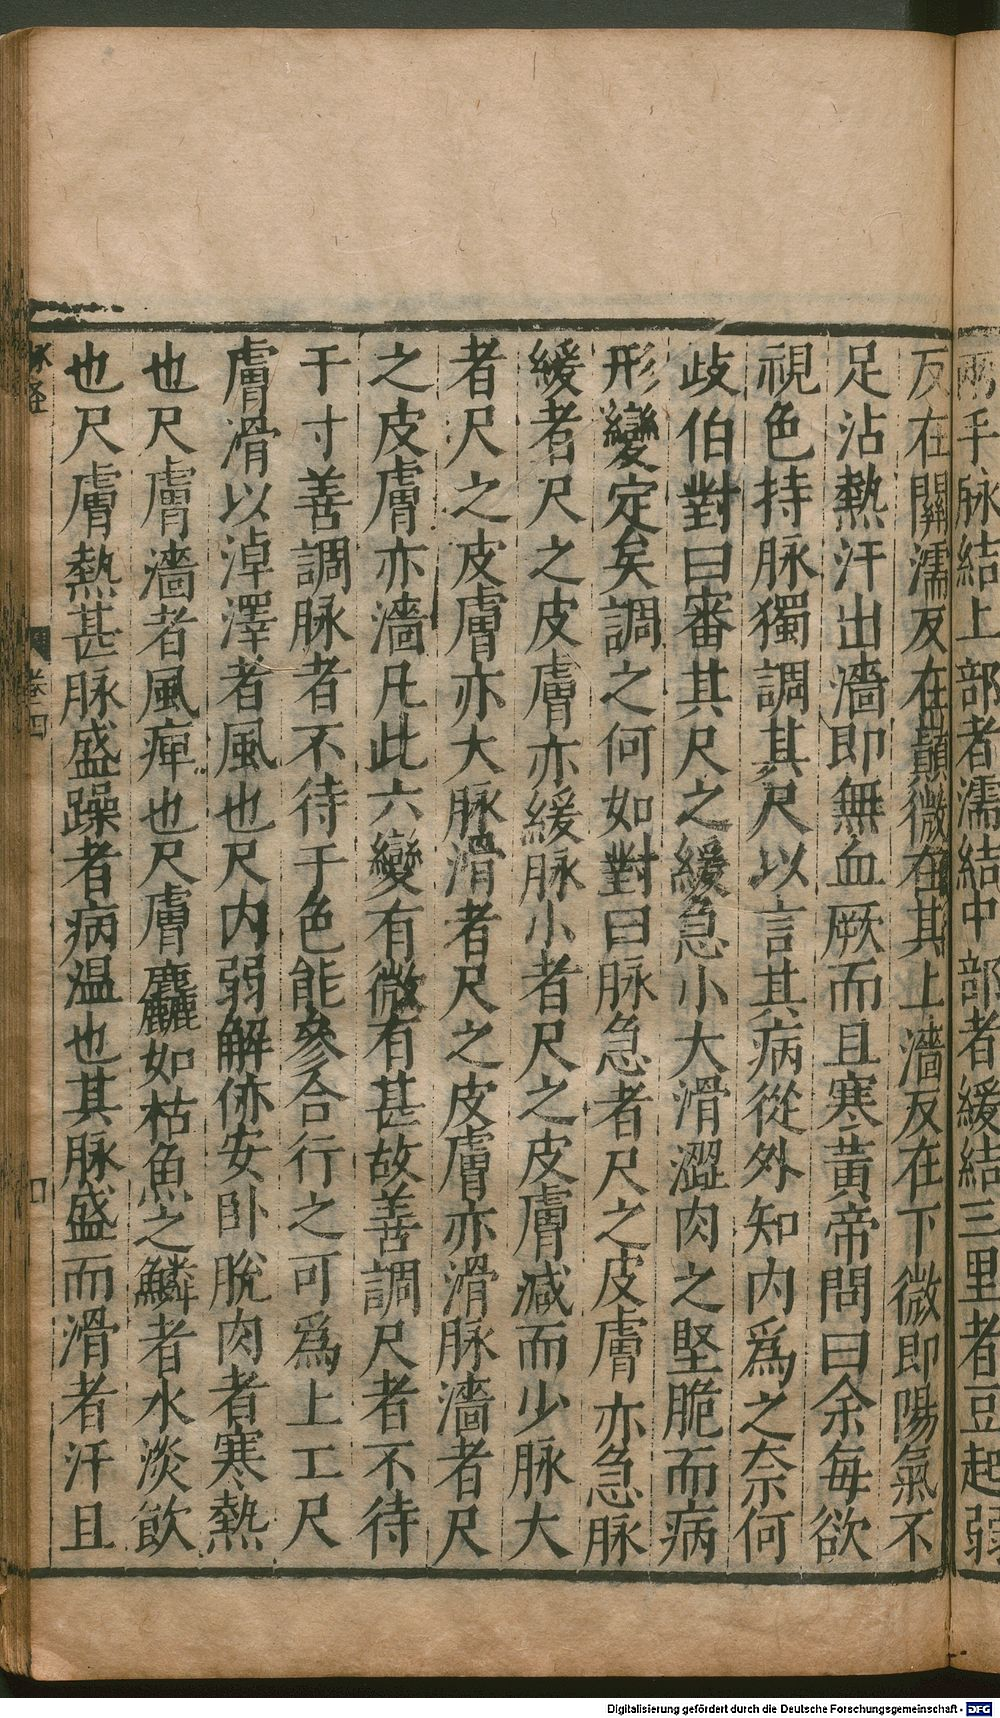 兩手脉結上部者濡結中部者緩結三里者豆起弱
反在關濡反在巔微在其上濇反在下微即陽氣不
足沾熱汗出濇即無血厥而且寒黃帝問曰余每欲
視色持脉獨調其尺以言其病從外知內爲之奈何
歧伯對曰審其尺之緩急小大滑澀肉之堅脆而病
形變定矣調之何如對曰脉急者尺之皮膚亦急脉
緩者尺之皮膚亦緩脉小者尺之皮膚減而少脉大
者尺之皮膚亦大脉滑者尺之皮膚亦滑脉濇者尺
之皮膚亦濇凡此六變有微有甚故善調尺者不待
于寸善調脉者不待于色能參合行之可爲上工尺
膚滑以淖澤者風也尺内弱解㑊安卧脫肉者寒熱
也尺膚濇者風痺也尺膚麤如枯魚之鱗者水淡飲
也尺膚熱甚脉盛躁者病温也其脉盛而滑者汗且
脉經
卷四
Digitalisierung gefördert durch die Deutsche Forschungsgemeinschaft - DFG